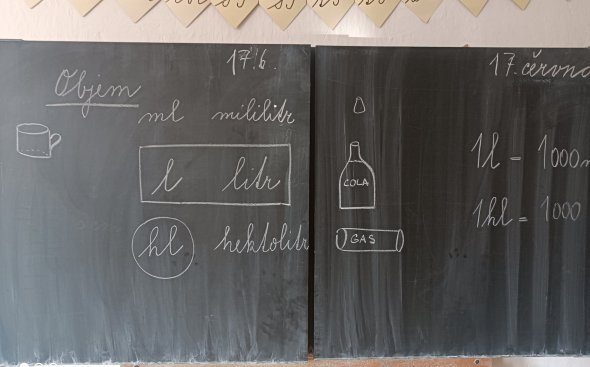 17.6.
Objem
ml mililitr
l litr
hl hektolitr
17. června
COLA
GAS
1l = 1000m
1hl = 1000